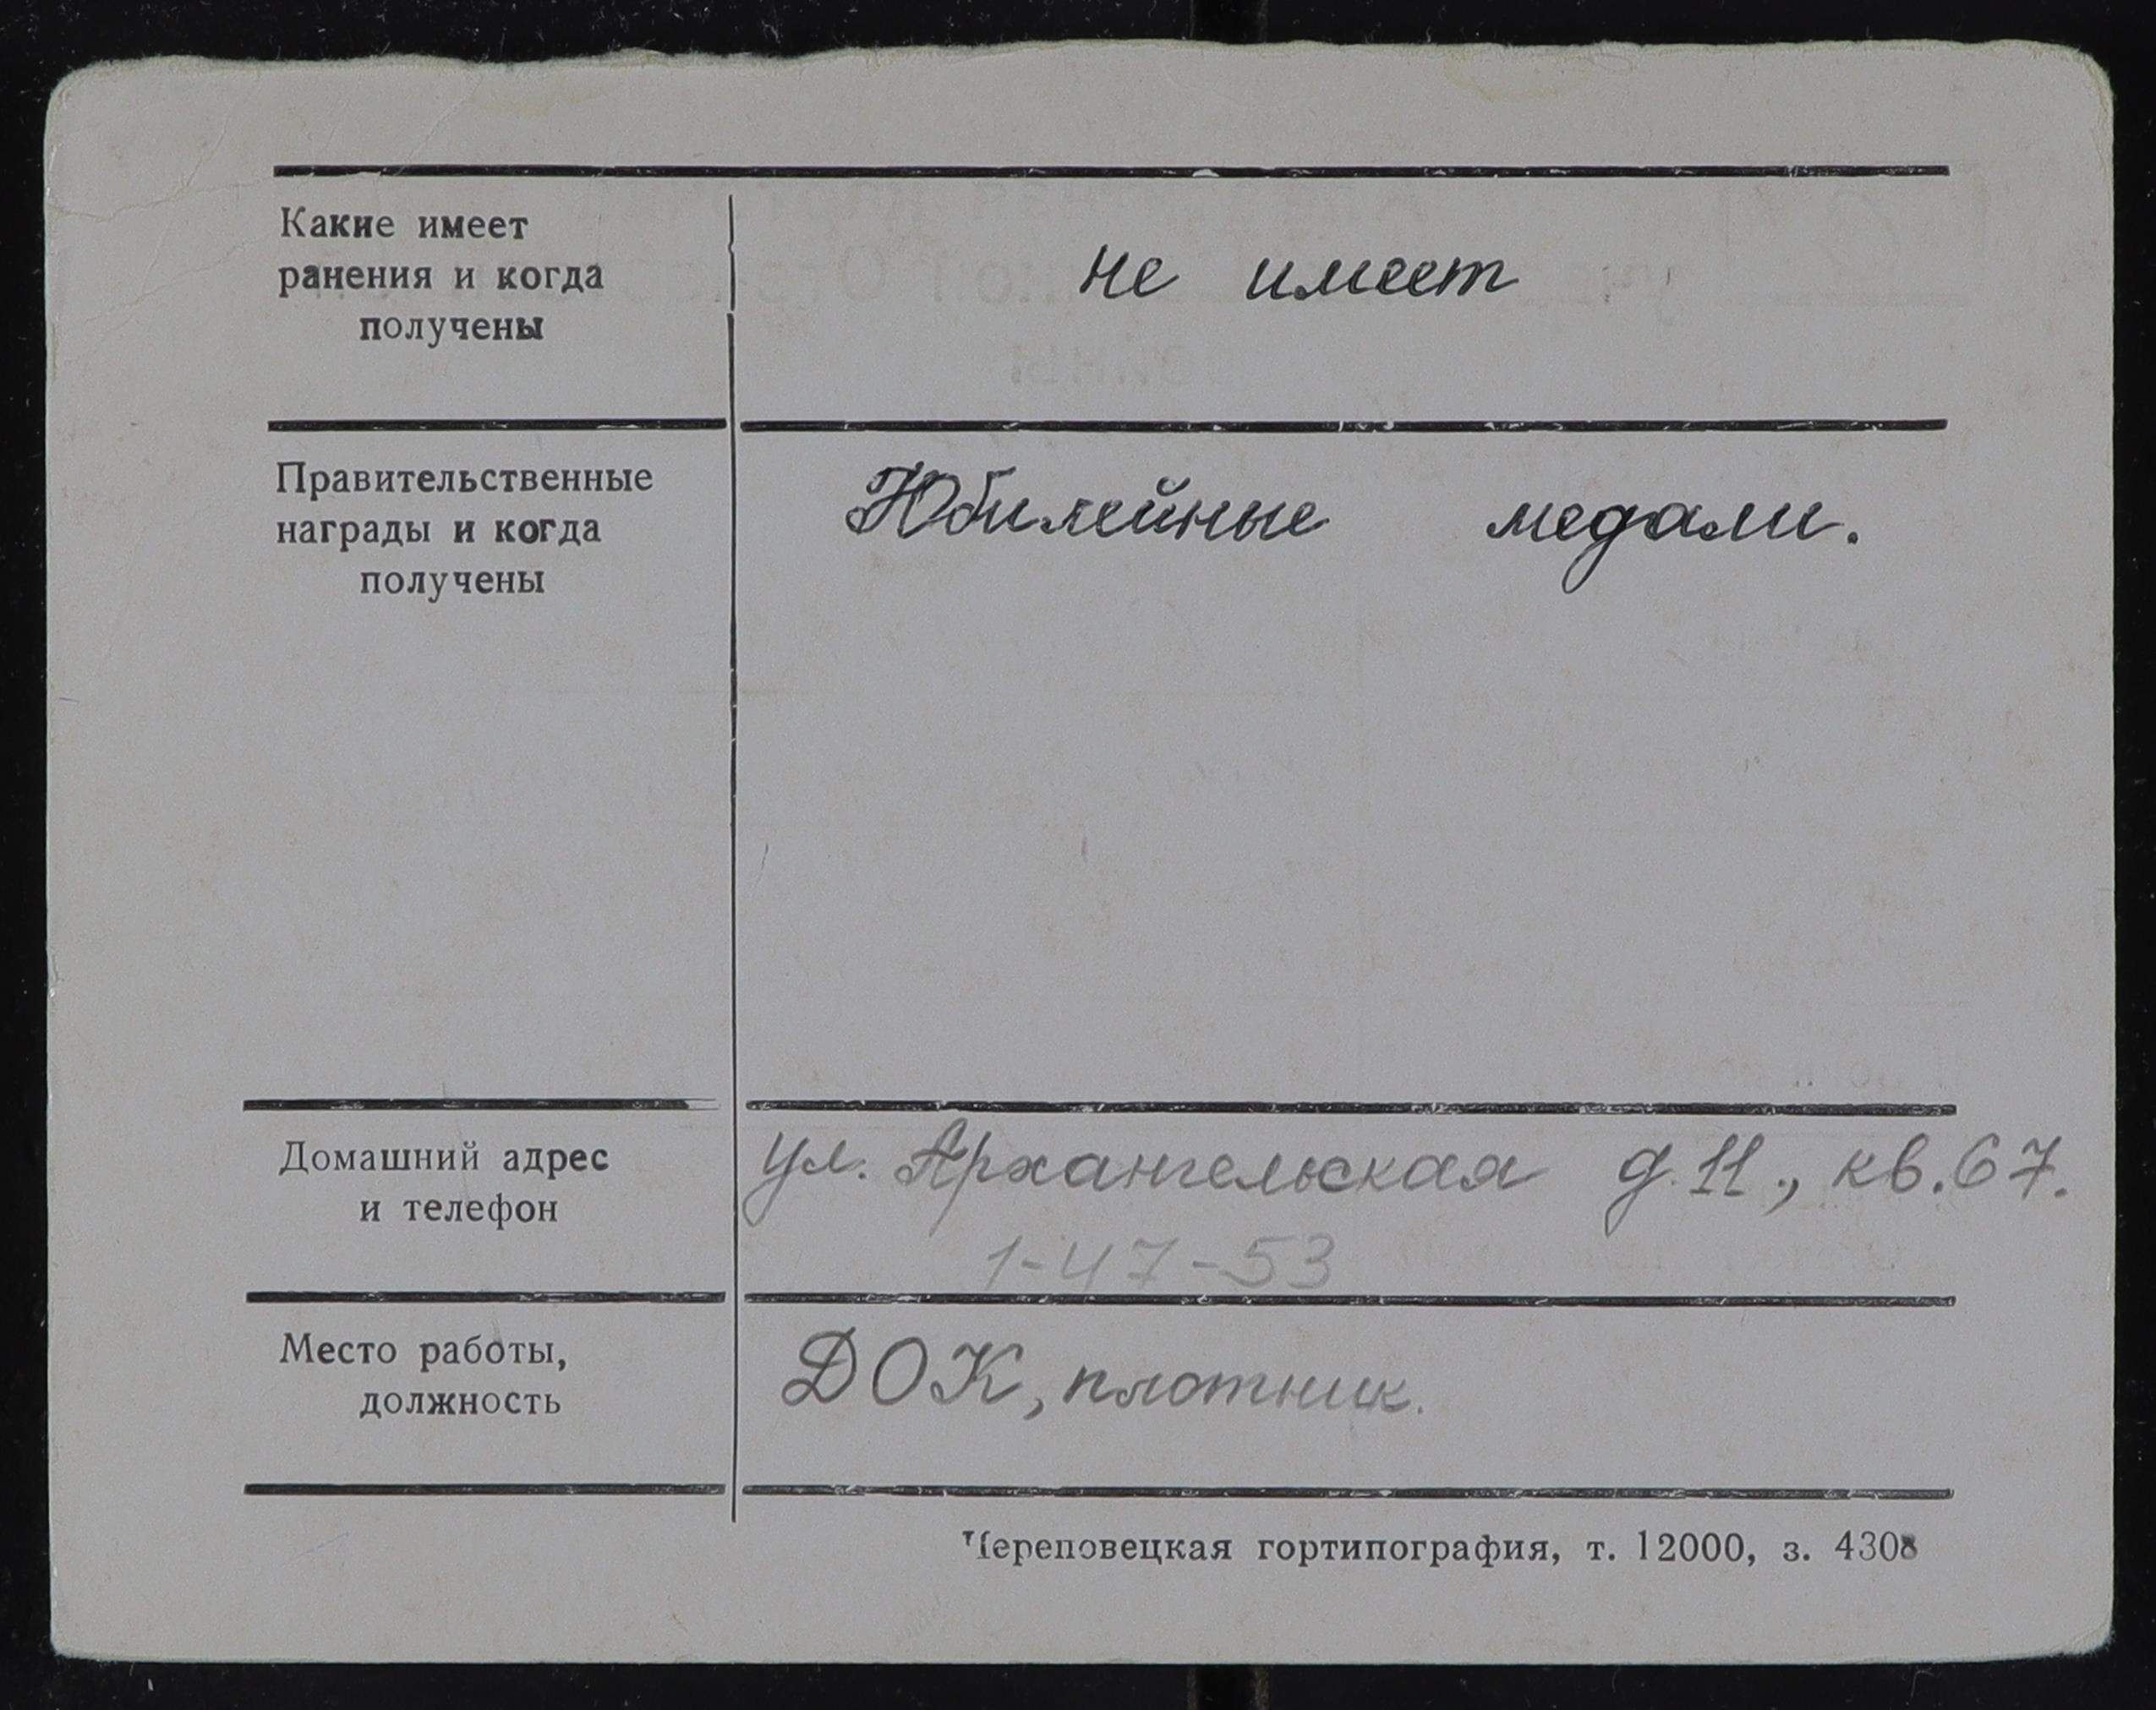 Какие имеет
ранения и когда
получены
не имеет
Правительственные
награды и когда
получены
Юбилейные медали.
Домашний адрес
и телефон
ул. Архангельская д. 11., кв. 67.
1-47-53
Место работы,
должность
ДОК, плотник.
Череповецкая гортипография, т. 12000, з. 4308